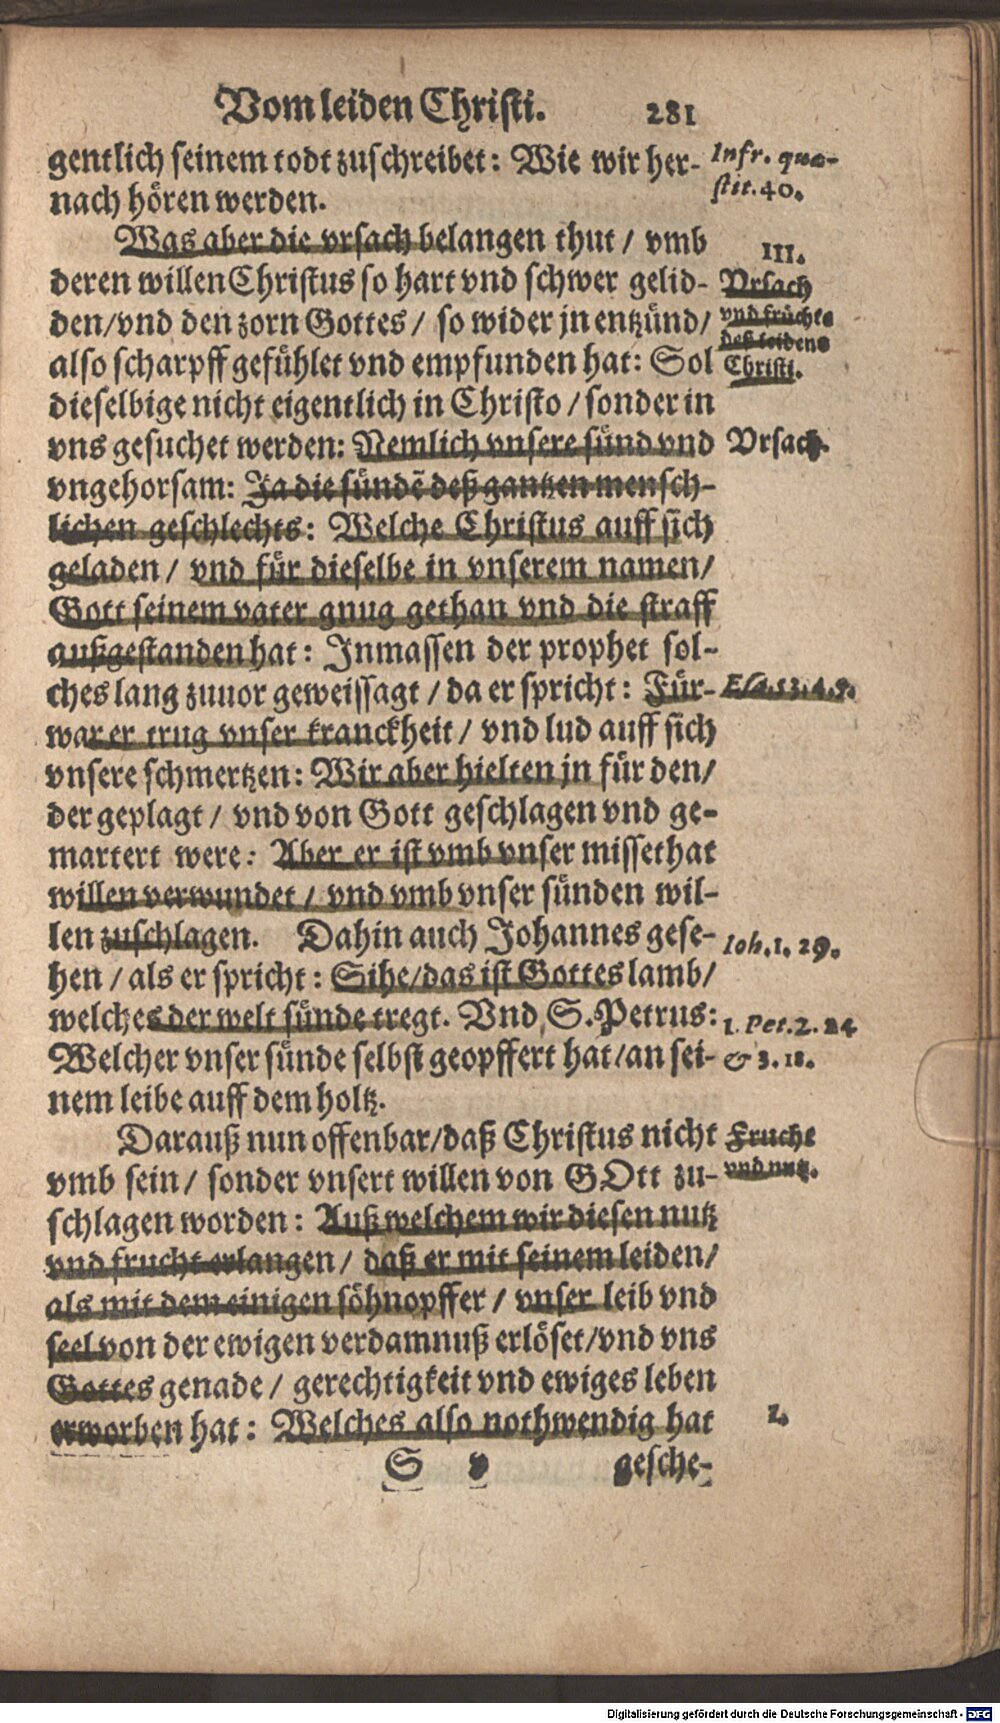 Vom leiden Christi. 281
gentlich seinem todt zuschreibet: Wie wir her-
Infr. quæ-
stit. 40.
nach hören werden.
Was aber die vrsach belangen thut / vmb
III.
deren willen Christus so hart vnd schwer gelid-
Vrsach
den/vnd den zorn Gottes / so wider jn entzünd/
vnd früchte
deß leidens
also scharpff gefühlet vnd empfunden hat: Sol
Christi.
dieselbige nicht eigentlich in Christo / sonder in
vns gesuchet werden: Nemlich vnsere sünd vnd
Vrsach.
vngehorsam: Ja die sündẽ deß gantzen mensch-
lichen geschlechts: Welche Christus auff sich
geladen / vnd für dieselbe in vnserem namen/
Gott seinem vater gnug gethan vnd die straff
außgestanden hat: Inmassen der prophet sol-
ches lang zuuor geweissagt / da er spricht: Für-
Esa. 53. 4. 5.
war er trug vnser kranckheit / vnd lud auff sich
vnsere schmertzen: Wir aber hielten jn für den/
der geplagt / vnd von Gott geschlagen vnd ge-
martert were: Aber er ist vmb vnser missethat
willen verwundet / vnd vmb vnser sünden wil-
len zuschlagen. Dahin auch Johannes gese-
Ioh. 1. 29.
hen / als er spricht: Sihe/das ist Gottes lamb/
welches der welt sünde tregt. Vnd S. Petrus:
1. Pet. 2. 24
Welcher vnser sünde selbst geopffert hat/an sei-
& 3. 18.
nem leibe auff dem holtz.
Darauß nun offenbar/daß Christus nicht
Frucht
vmb sein / sonder vnsert willen von GOtt zu-
vnd nutz.
schlagen worden: Auß welchem wir diesen nutz
vnd frucht erlangen / daß er mit seinem leiden/
als mit dem einigen söhnopffer / vnser leib vnd
seel von der ewigen verdamnuß erlöset/vnd vns
Gottes genade / gerechtigkeit vnd ewiges leben
erworben hat: Welches also nothwendig hat
1.
S v gesche-
Digitalisierung gefördert durch die Deutsche Forschungsgemeinschaft - DFG